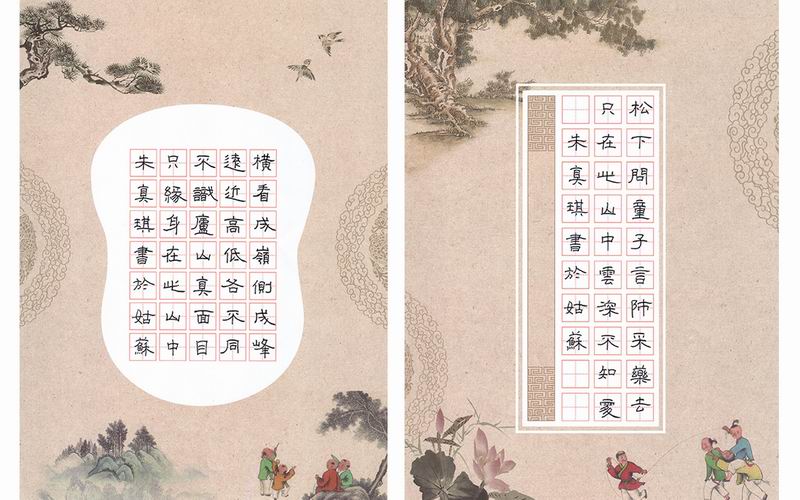 橫看成嶺側成峰
遠近高低各不同
不識廬山真面目
只緣身在此山中
朱真琪書於姑蘇
松下問童子言師采藥去
只在此山中雲深不知處
朱真琪書於姑蘇